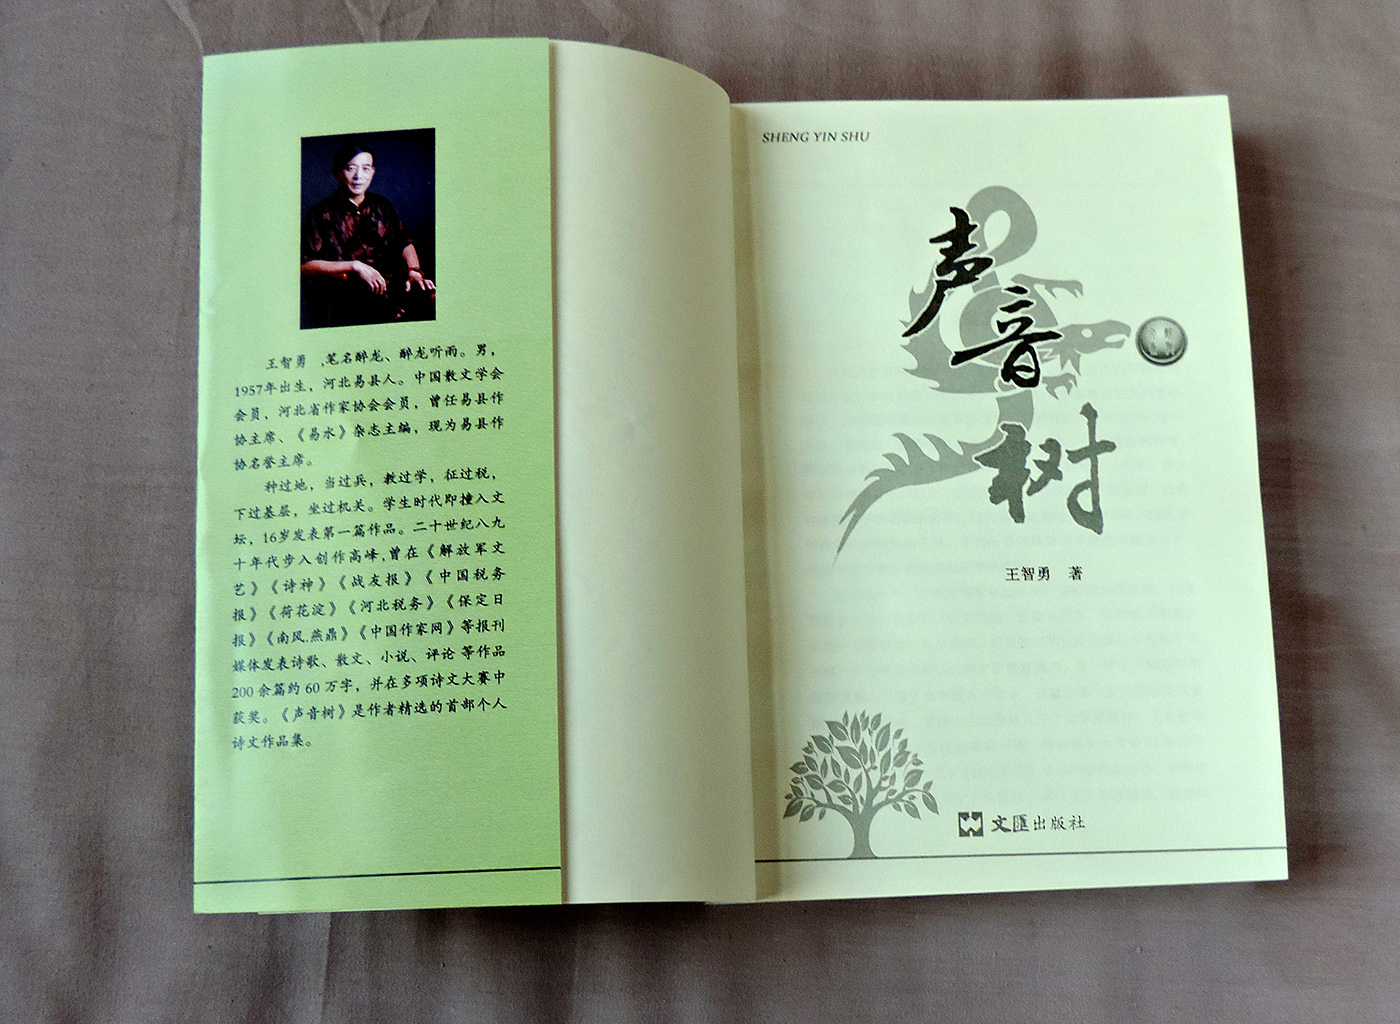 王智勇 ,笔名醉龙、醉龙听雨。男，
1957年出生，河北易县人。中国散文学会
会员，河北省作家协会会员，曾任易县作
协主席、《易水》杂志主编，现为易县作
协名誉主席。
种过地，当过兵，教过学，征过税，
下过基层，坐过机关。学生时代即撞入文
坛，16岁发表第一篇作品。二十世纪八九
十年代步入创作高峰,曾在《解放军文
艺》《诗神》《战友报》《中国税务
报》《荷花淀》《河北税务》《保定日
报》《南风.燕鼎》《中国作家网》等报刊
媒体发表诗歌、散文、小说、评论 等作品
200 余篇约 60 万字，并在多项诗文大赛中
获奖。《声音树》是作者精选的首部个人
诗文作品集。
SHENG YIN SHU
声
音
树
王智勇 著
文匯出版社